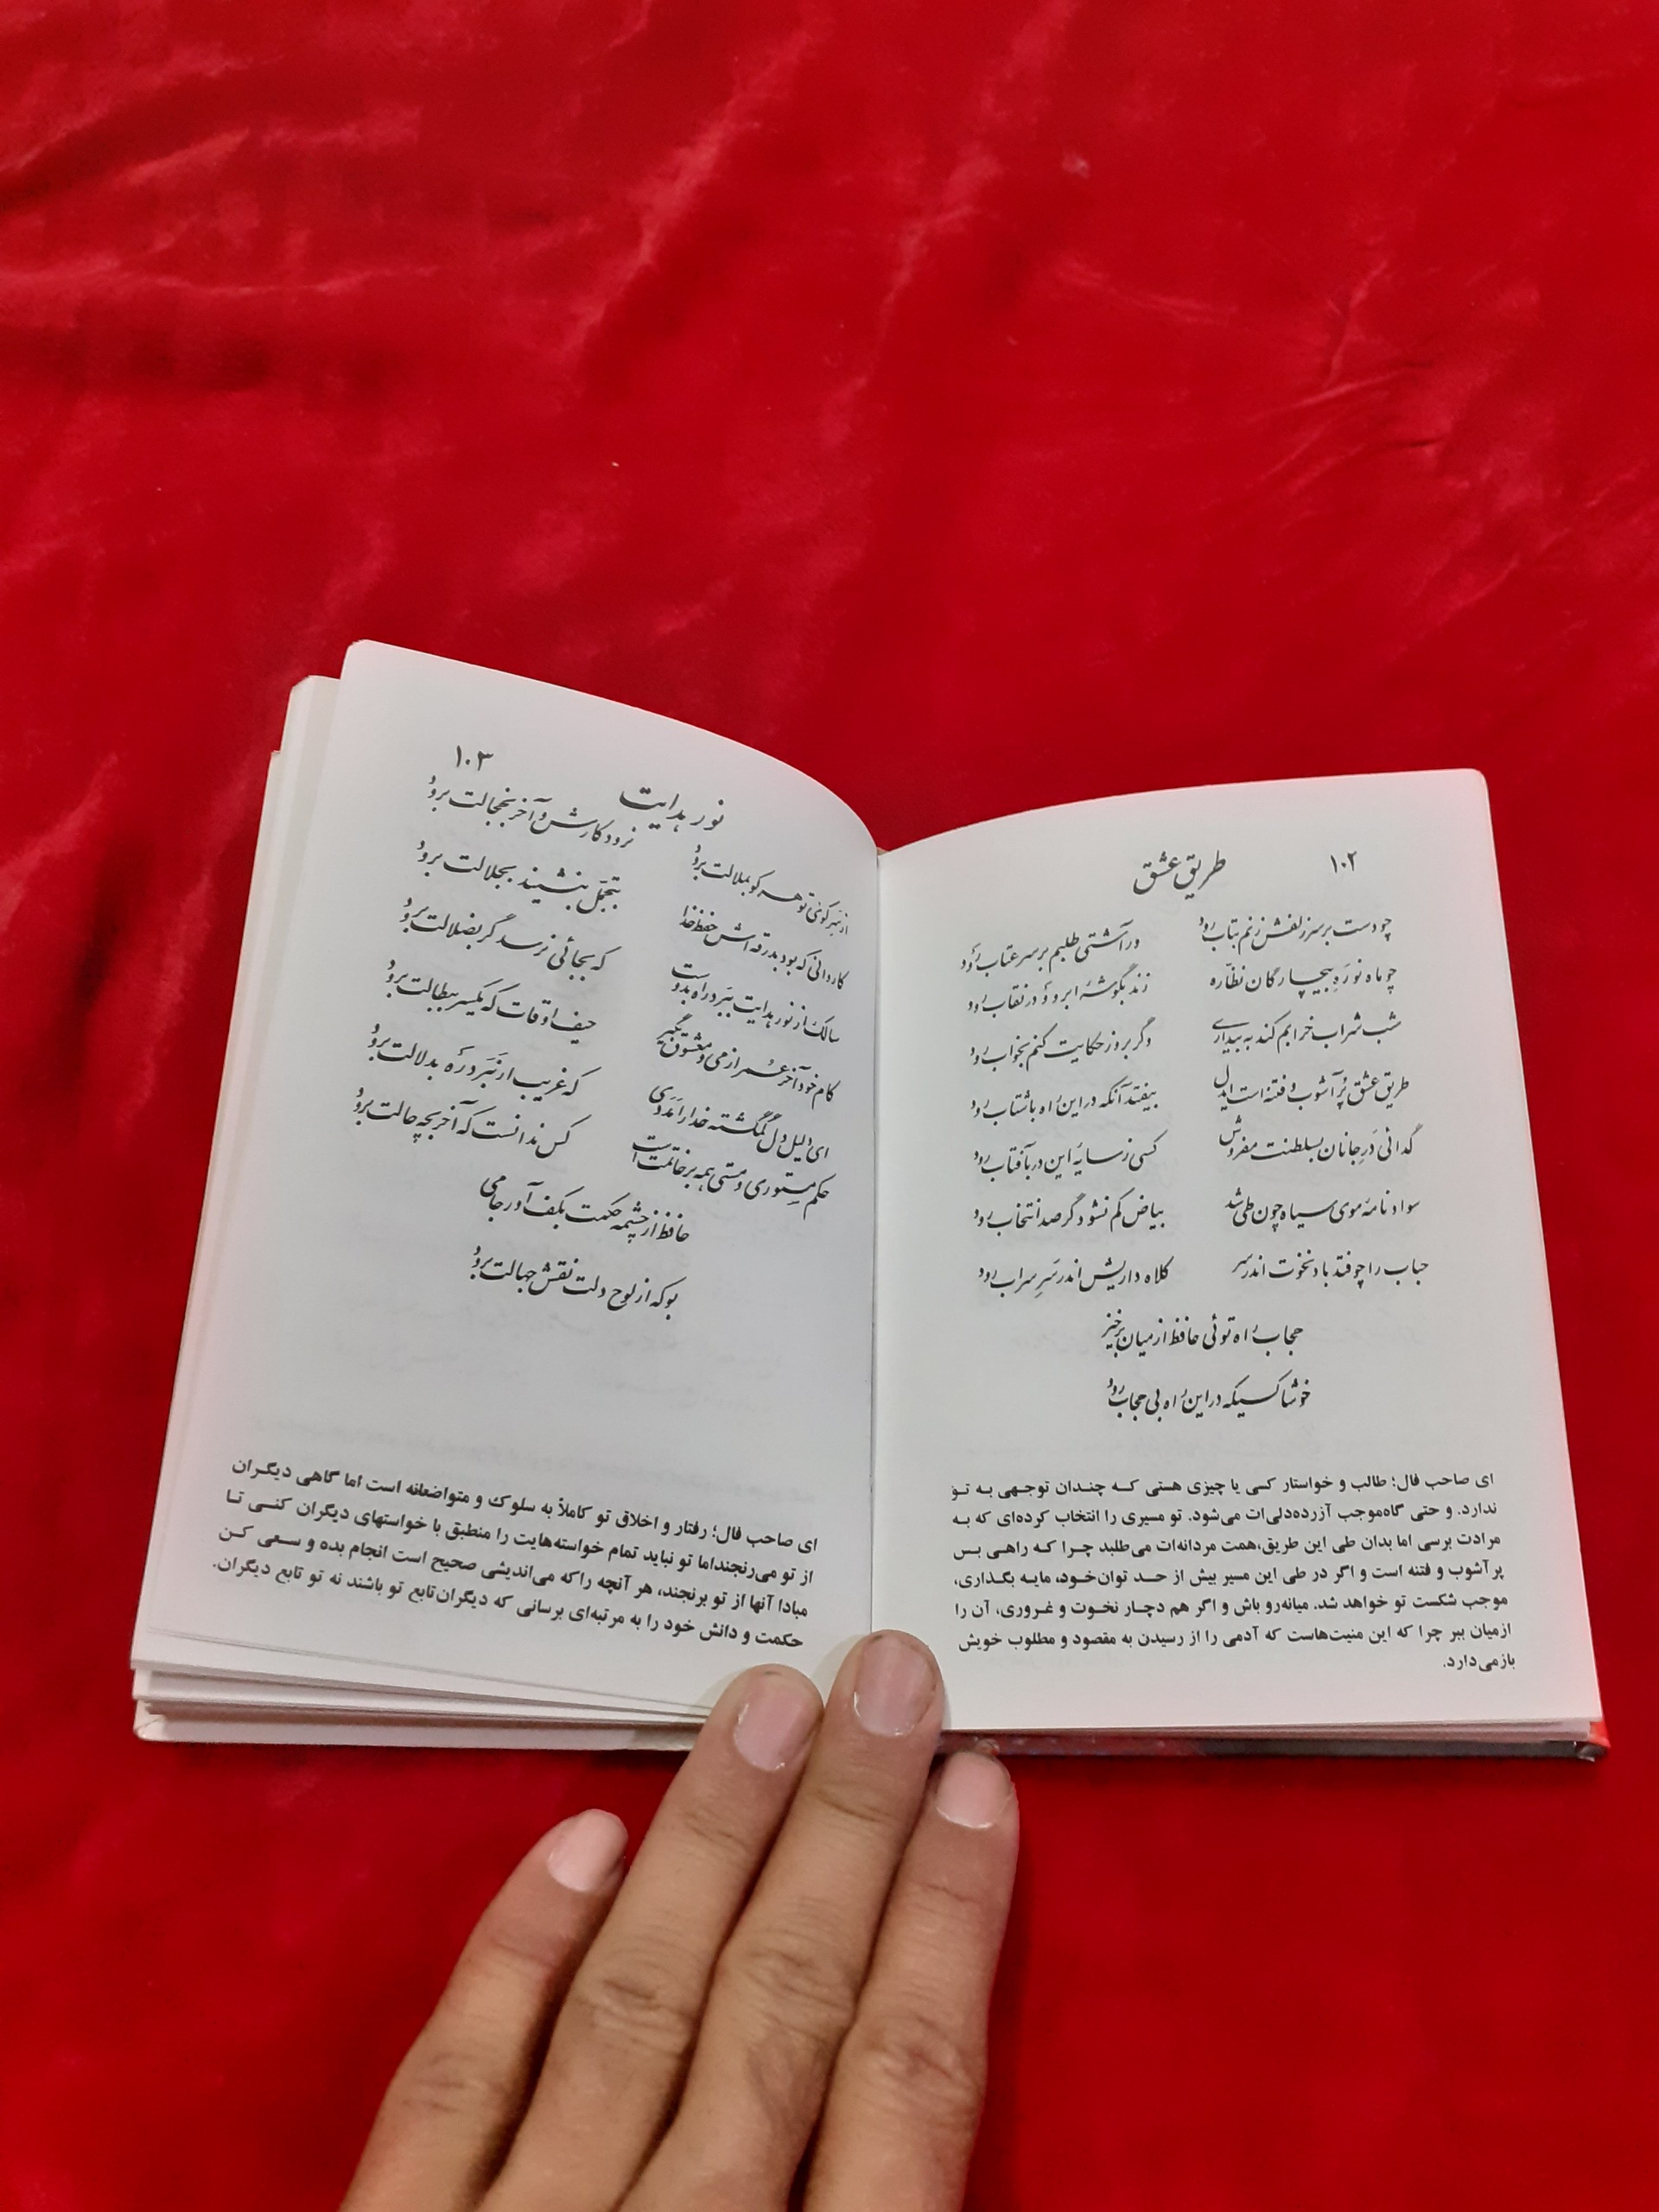 ۱۰۲
طریق عشق
چو دست بر سر زلفش زنم بتاب رود
ور آشتی طلبم بر سر عتاب رود
چو ماه نو ره بیچارگان نظّاره
زند بگوشهٔ ابرو و در نقاب رود
شب شراب خرابم کند به بیداری
وگر بروز حکایت کنم بخواب رود
طریق عشق پُر آشوب و فتنه است ایدل
بیفتد آنکه در این راه باشتاب رود
گدائی دَرِ جانان بسلطنت مفروش
کسی ز سایهٔ این در بآفتاب رود
سواد نامهٔ موی سیاه چون طی شد
بیاض کم نشود گر صد انتخاب رود
حباب را چو فتد باد نخوت اندر سر
کلاه داریش اندر سَرِ سراب رود
حجاب راه توئی حافظ از میان برخیز
خوشا کسیکه در این راه بی حجاب رود
ای صاحب فال؛ طالب و خواستار کسی یا چیزی هستی کـه چنـدان توجـهی بـه تـو
ندارد. و حتی گاه‌موجب آزرده‌دلی‌ات می‌شود. تو مسیری را انتخاب کرده‌ای که بـه
مرادت برسی اما بدان طی این طریق،همت مردانه‌ات می‌طلبد چـرا کـه راهـی بـس
پرآشوب و فتنه است و اگر در طی این مسیر بیش از حـد توان‌خـود، مایـه بگـذاری،
موجب شکست تو خواهد شد. میانه‌رو باش و اگر هم دچـار نخـوت و غـروری، آن را
ازمیان ببر چرا که این منیت‌هاست که آدمی را از رسیدن به مقصود و مطلوب خویش
بازمی‌دارد.
۱۰۳
نور هدایت
از سر کوی تو هر کو بملالت برود
نرود کارش و آخر بخجالت برود
کاروانی که بود بدرقه اش حفظ خدا
بتجمّل بنشیند بجلالت برود
سالک از نور هدایت ببرد راه بدوست
که بجائی نرسد گر بضلالت برود
کام خود آخر عمر از می و معشوق بگیر
حیف اوقات که یکسر ببطالت برود
ای دلیل دل گمگشته خدا را مددی
که غریب ار نَبَرد رَه بدلالت برود
حکم مستوری و مستی همه بر خاتمت است
کس ندانست که آخر بچه حالت برود
حافظ از چشمه حکمت بکف آور جامی
بو که از لوح دلت نقش جهالت برود
ای صاحب فال؛ رفتار و اخلاق تو کاملاً به سلوک و متواضعانه است اما گاهی دیگـران
از تو می‌رنجنداما تو نباید تمام خواسته‌هایت را منطبق با خواستهای دیگران کنـی تـا
مبادا آنها از تو برنجند، هر آنچه راکه می‌اندیشی صحیح است انجام بده و سـعی کـن
حکمت و دانش خود را به مرتبه‌ای برسانی که دیگران‌تابع تو باشند نه تو تابع دیگران.